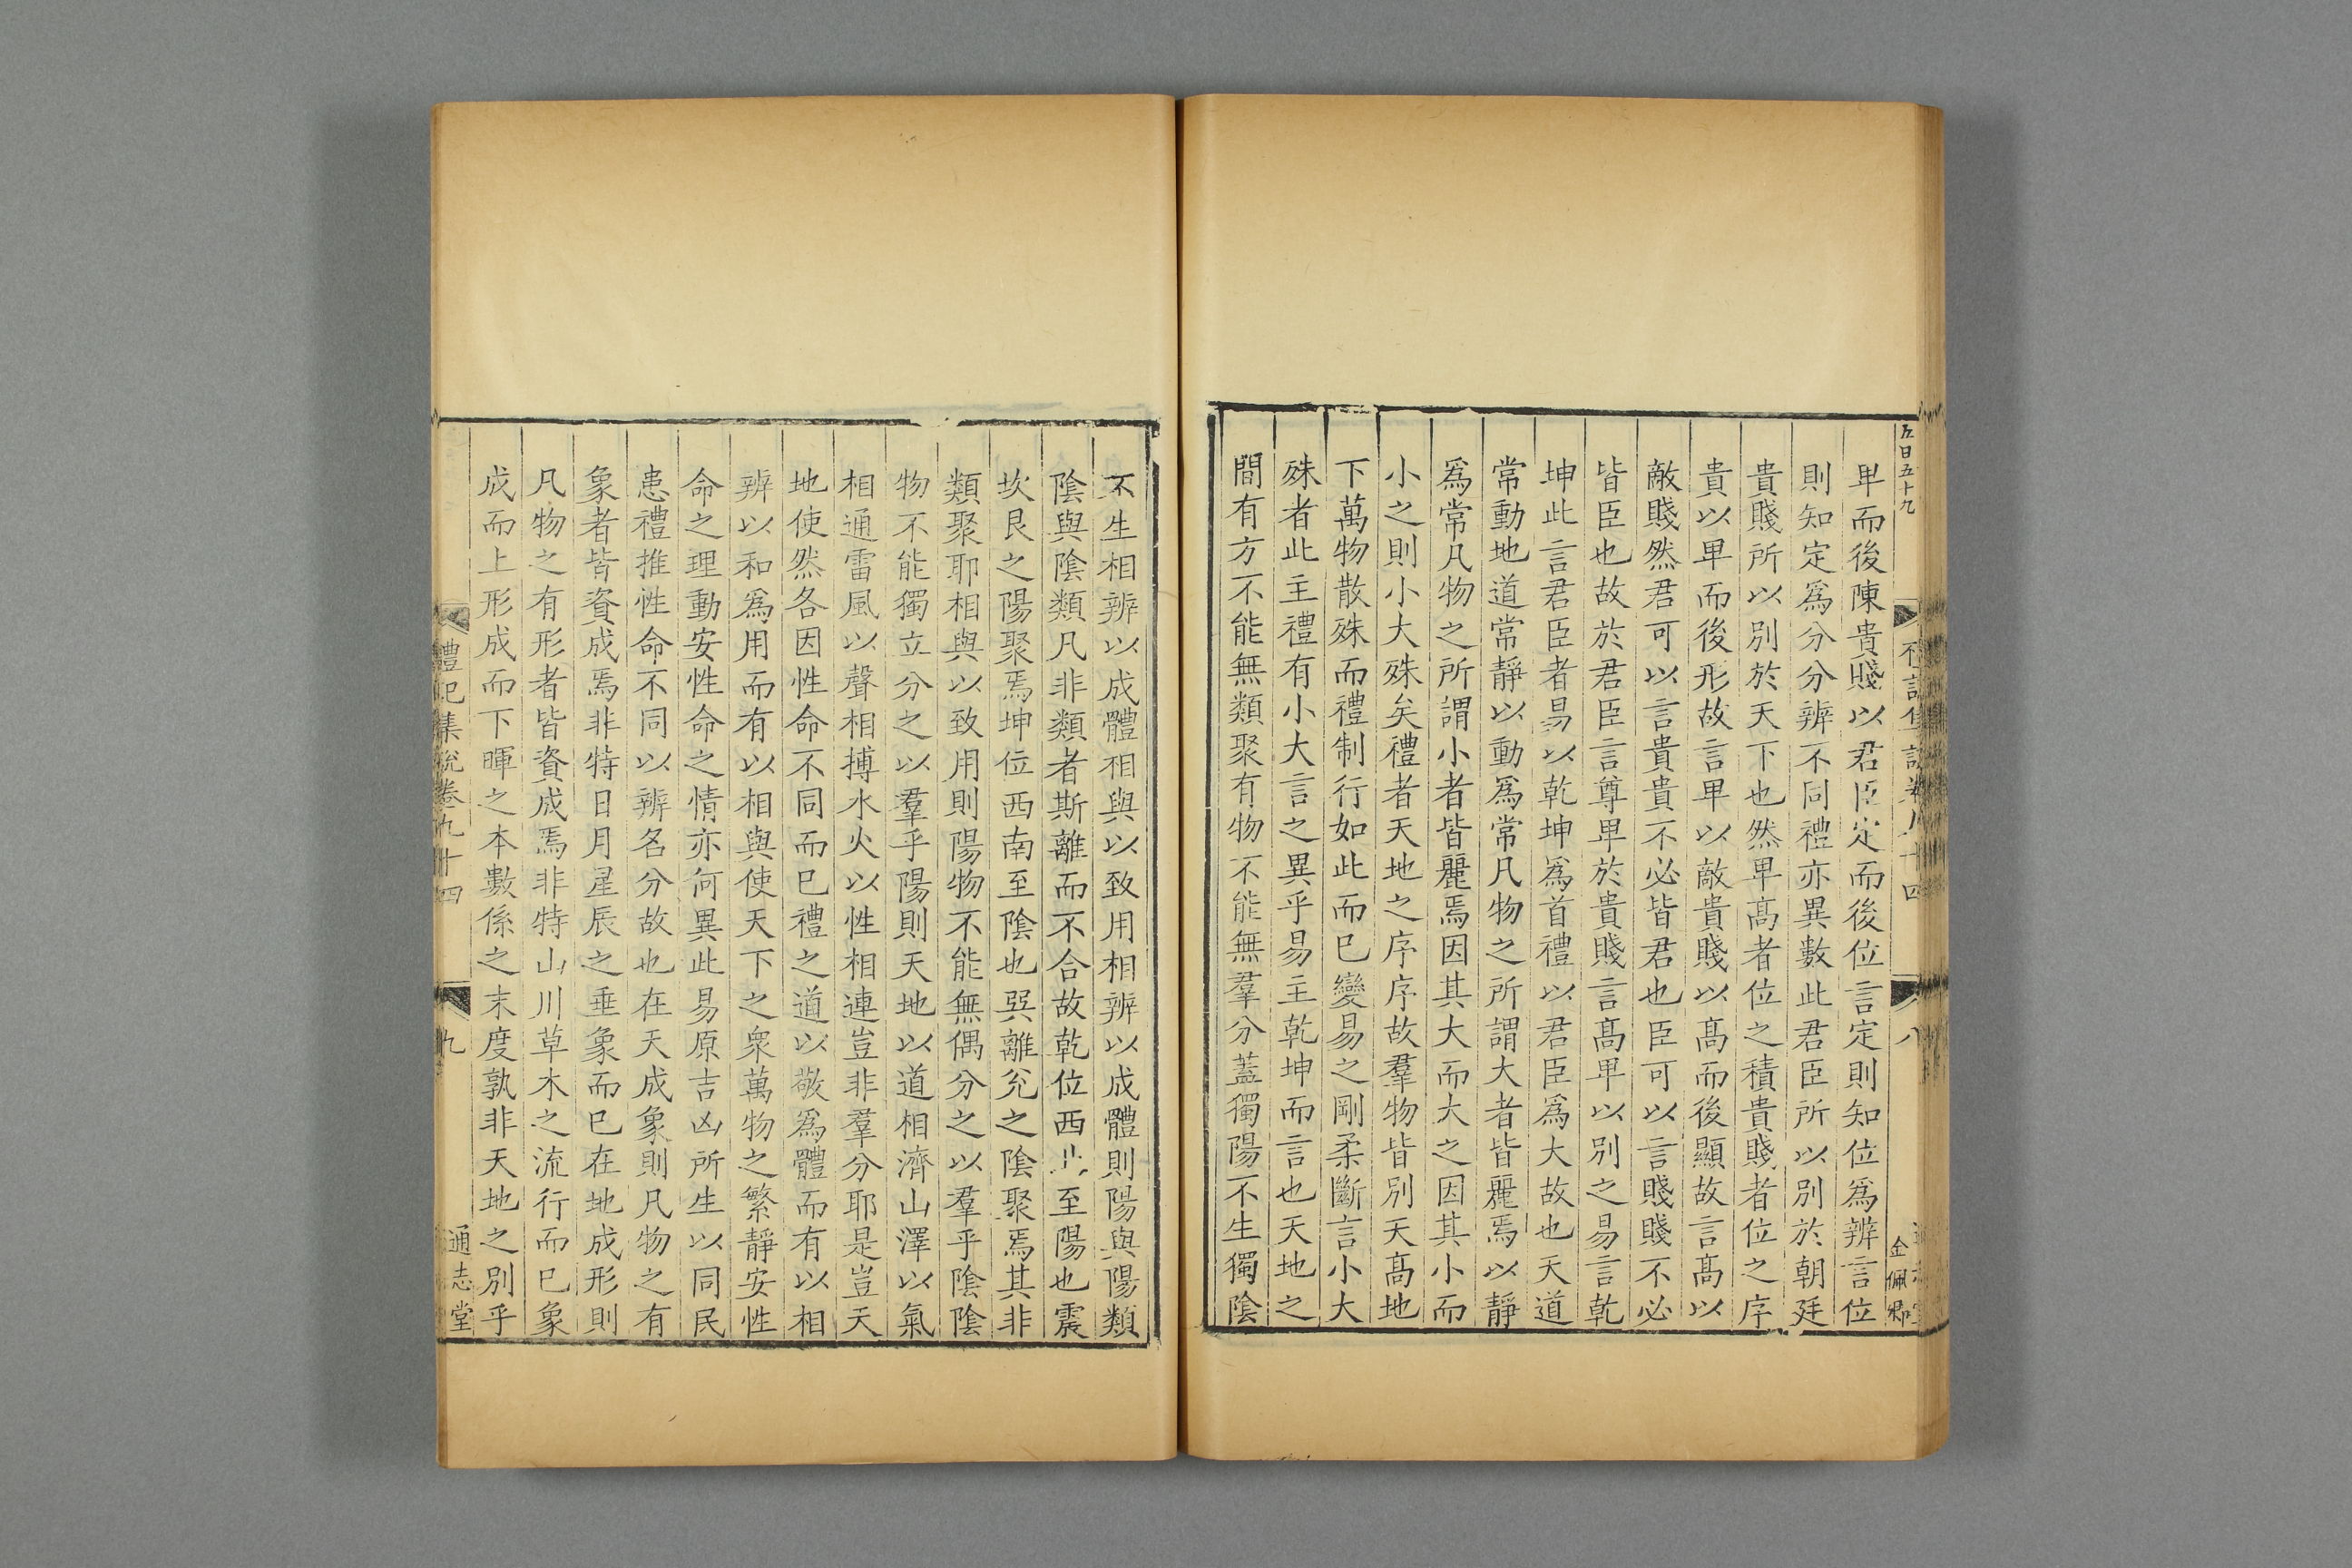 五百五十九
金佩卿
卑而後陳貴賤以君臣定而後位言定則知位爲辨言位
則知定爲分分辨不同禮亦異數此君臣所以別於朝廷
貴賤所以別於天下也然卑髙者位之積貴賤者位之序
貴以卑而後形故言卑以敵貴賤以髙而後顯故言髙以
敵賤然君可以言貴貴不必皆君也臣可以言賤賤不必
皆臣也故於君臣言尊卑於貴賤言髙卑以別之易言乾
坤此言君臣者易以乾坤爲首禮以君臣爲大故也天道
常動地道常靜以動爲常凡物之所謂大者皆麗焉以靜
爲常凡物之所謂小者皆麗焉因其大而大之因其小而
小之則小大殊矣禮者天地之序序故羣物皆別天髙地
下萬物散殊而禮制行如此而已變易之剛柔斷言小大
殊者此主禮有小大言之異乎易主乾坤而言也天地之
間有方不能無類聚有物不能無羣分蓋獨陽不生獨陰
不生相辨以成體相與以致用相辨以成體則陽與陽類
陰與陰類凡非類者斯離而不合故乾位西北至陽也震
坎艮之陽聚焉坤位西南至陰也巽離兊之陰聚焉其非
類聚耶相與以致用則陽物不能無偶分之以羣乎陰陰
物不能獨立分之以羣乎陽則天地以道相濟山澤以氣
相通雷風以聲相搏水火以性相連豈非羣分耶是豈天
地使然各因性命不同而已禮之道以敬爲體而有以相
辨以和爲用而有以相與使天下之衆萬物之繁靜安性
命之理動安性命之情亦何異此易原吉凶所生以同民
患禮推性命不同以辨名分故也在天成象則凡物之有
象者皆資成焉非特日月星辰之垂象而已在地成形則
凡物之有形者皆資成焉非特山川草木之流行而已象
成而上形成而下暉之本數係之末度孰非天地之別乎
禮記集說卷九十四
九
通志堂